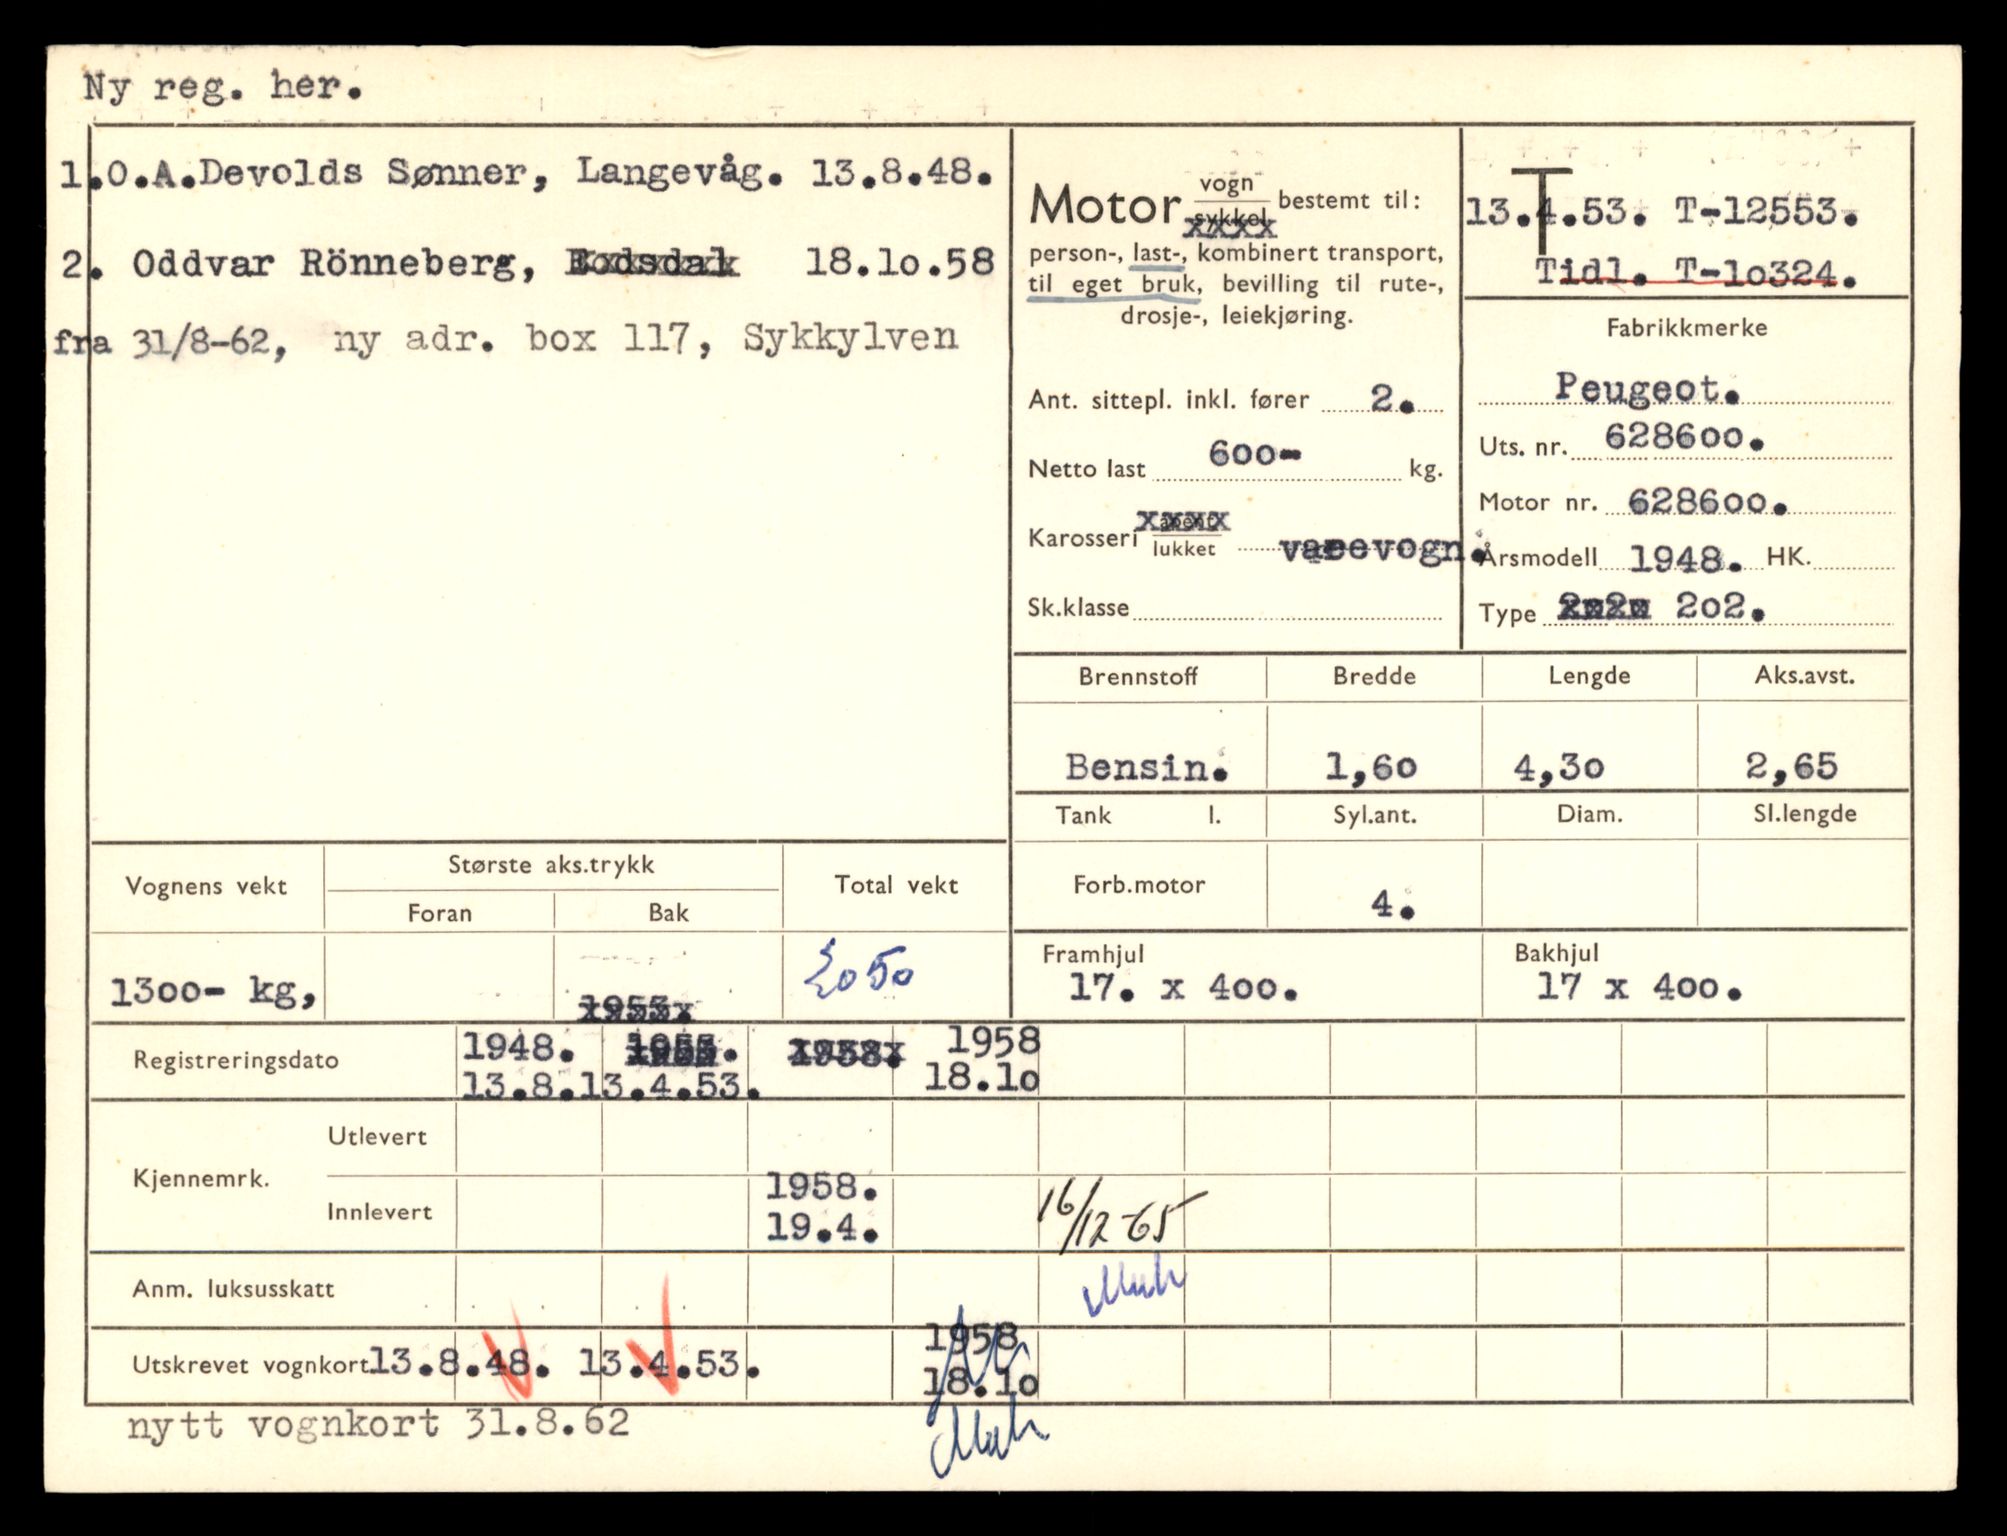 Ny reg. her.
1.O.A.Devolds Sønner, Langevåg. 13.8.48.
2. Oddvar Rönneberg, 18.10.58
fra 31/8-62, ny adr. box 117, Sykkylven
Motor vogn sykkel bestemt til:
person-, last-, kombinert transport,
til eget bruk, bevilling til rute-,
drosje-, leiekjøring.
Ant. sittepl. inkl. fører 2.
Netto last 600- kg.
Karosseri åpent lukket varevogn.
Sk.klasse
T
13.4.53. T-12553.
Tidl. T-10324.
Fabrikkmerke
Peugeot.
Uts. nr. 628600.
Motor nr. 628600.
Årsmodell 1948. HK.
Type 202.
Brennstoff Bredde Lengde Aks.avst.
Bensin. 1,60 4,30 2,65
Tank l. Syl.ant. Diam. Sl.lengde
Forb.motor 4.
Framhjul Bakhjul
17. x 400. 17 x 400.
Vognens vekt Største aks.trykk Total vekt
Foran Bak
1300- kg, 2050
1953.
Registreringsdato 1948. 1958. 1958
13.8. 13.4.53. 18.10
Kjennemrk. Utlevert
Innlevert 1958. 19.4. 16/12-65
Anm. luksusskatt
Utskrevet vognkort 13.8.48. 13.4.53. 1958 18.10
nytt vognkort 31.8.62